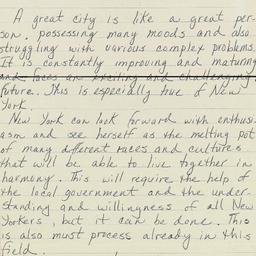 A great city is like a great per-
son, possessing many moods and also
struggling with various complex problems.
It is constantly improving and maturing
and faces an exciting and challenging
future. This is especially true of New
York.
New York can look forward with enthusi-
asm and see herself as the melting pot
of many different races and cultures
that will be able to live together in
harmony. This will require the help of
the local government and the under-
standing and willingness of all New
Yorkers, but it can be done. This
is also must process already in this
field.